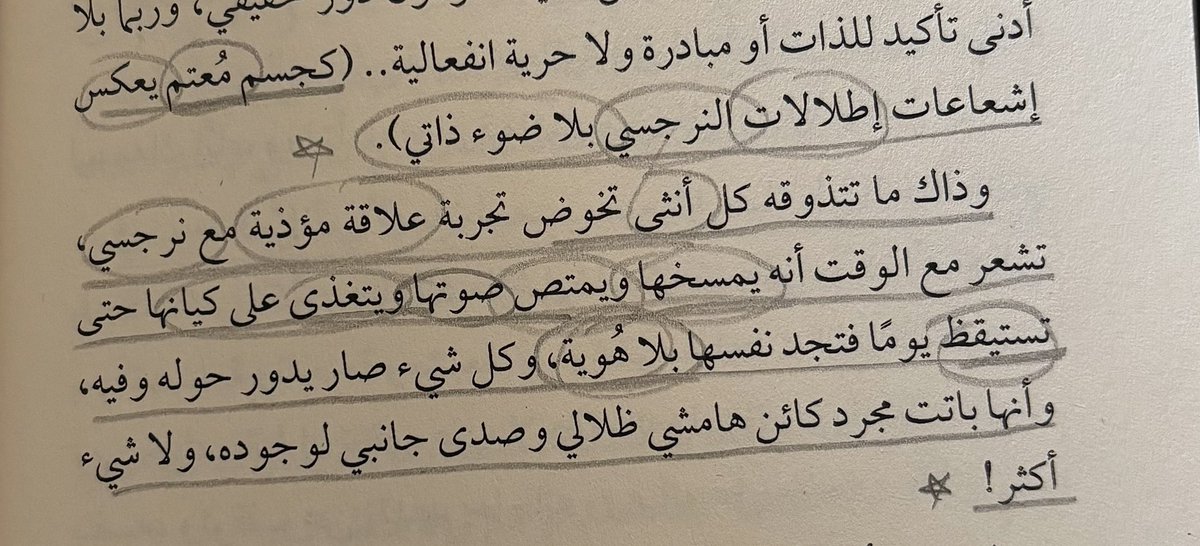 دور حقيقي، وربما بلا
أدنى تأكيد للذات أو مبادرة ولا حرية انفعالية.. (كجسم مُعتم يعكس
إشعاعات إطلالات النرجسي بلا ضوء ذاتي).
وذاك ما تتذوقه كل أنثى تخوض تجربة علاقة مؤذية مع نرجسي،
تشعر مع الوقت أنه يمسخها ويمتص صوتها ويتغذى على كيانها حتى
تستيقظ يومًا فتجد نفسها بلا هُوية، وكل شيء صار يدور حوله وفيه،
وأنها باتت مجرد كائن هامشي ظلالي وصدى جانبي لوجوده، ولا شيء
أكثر!